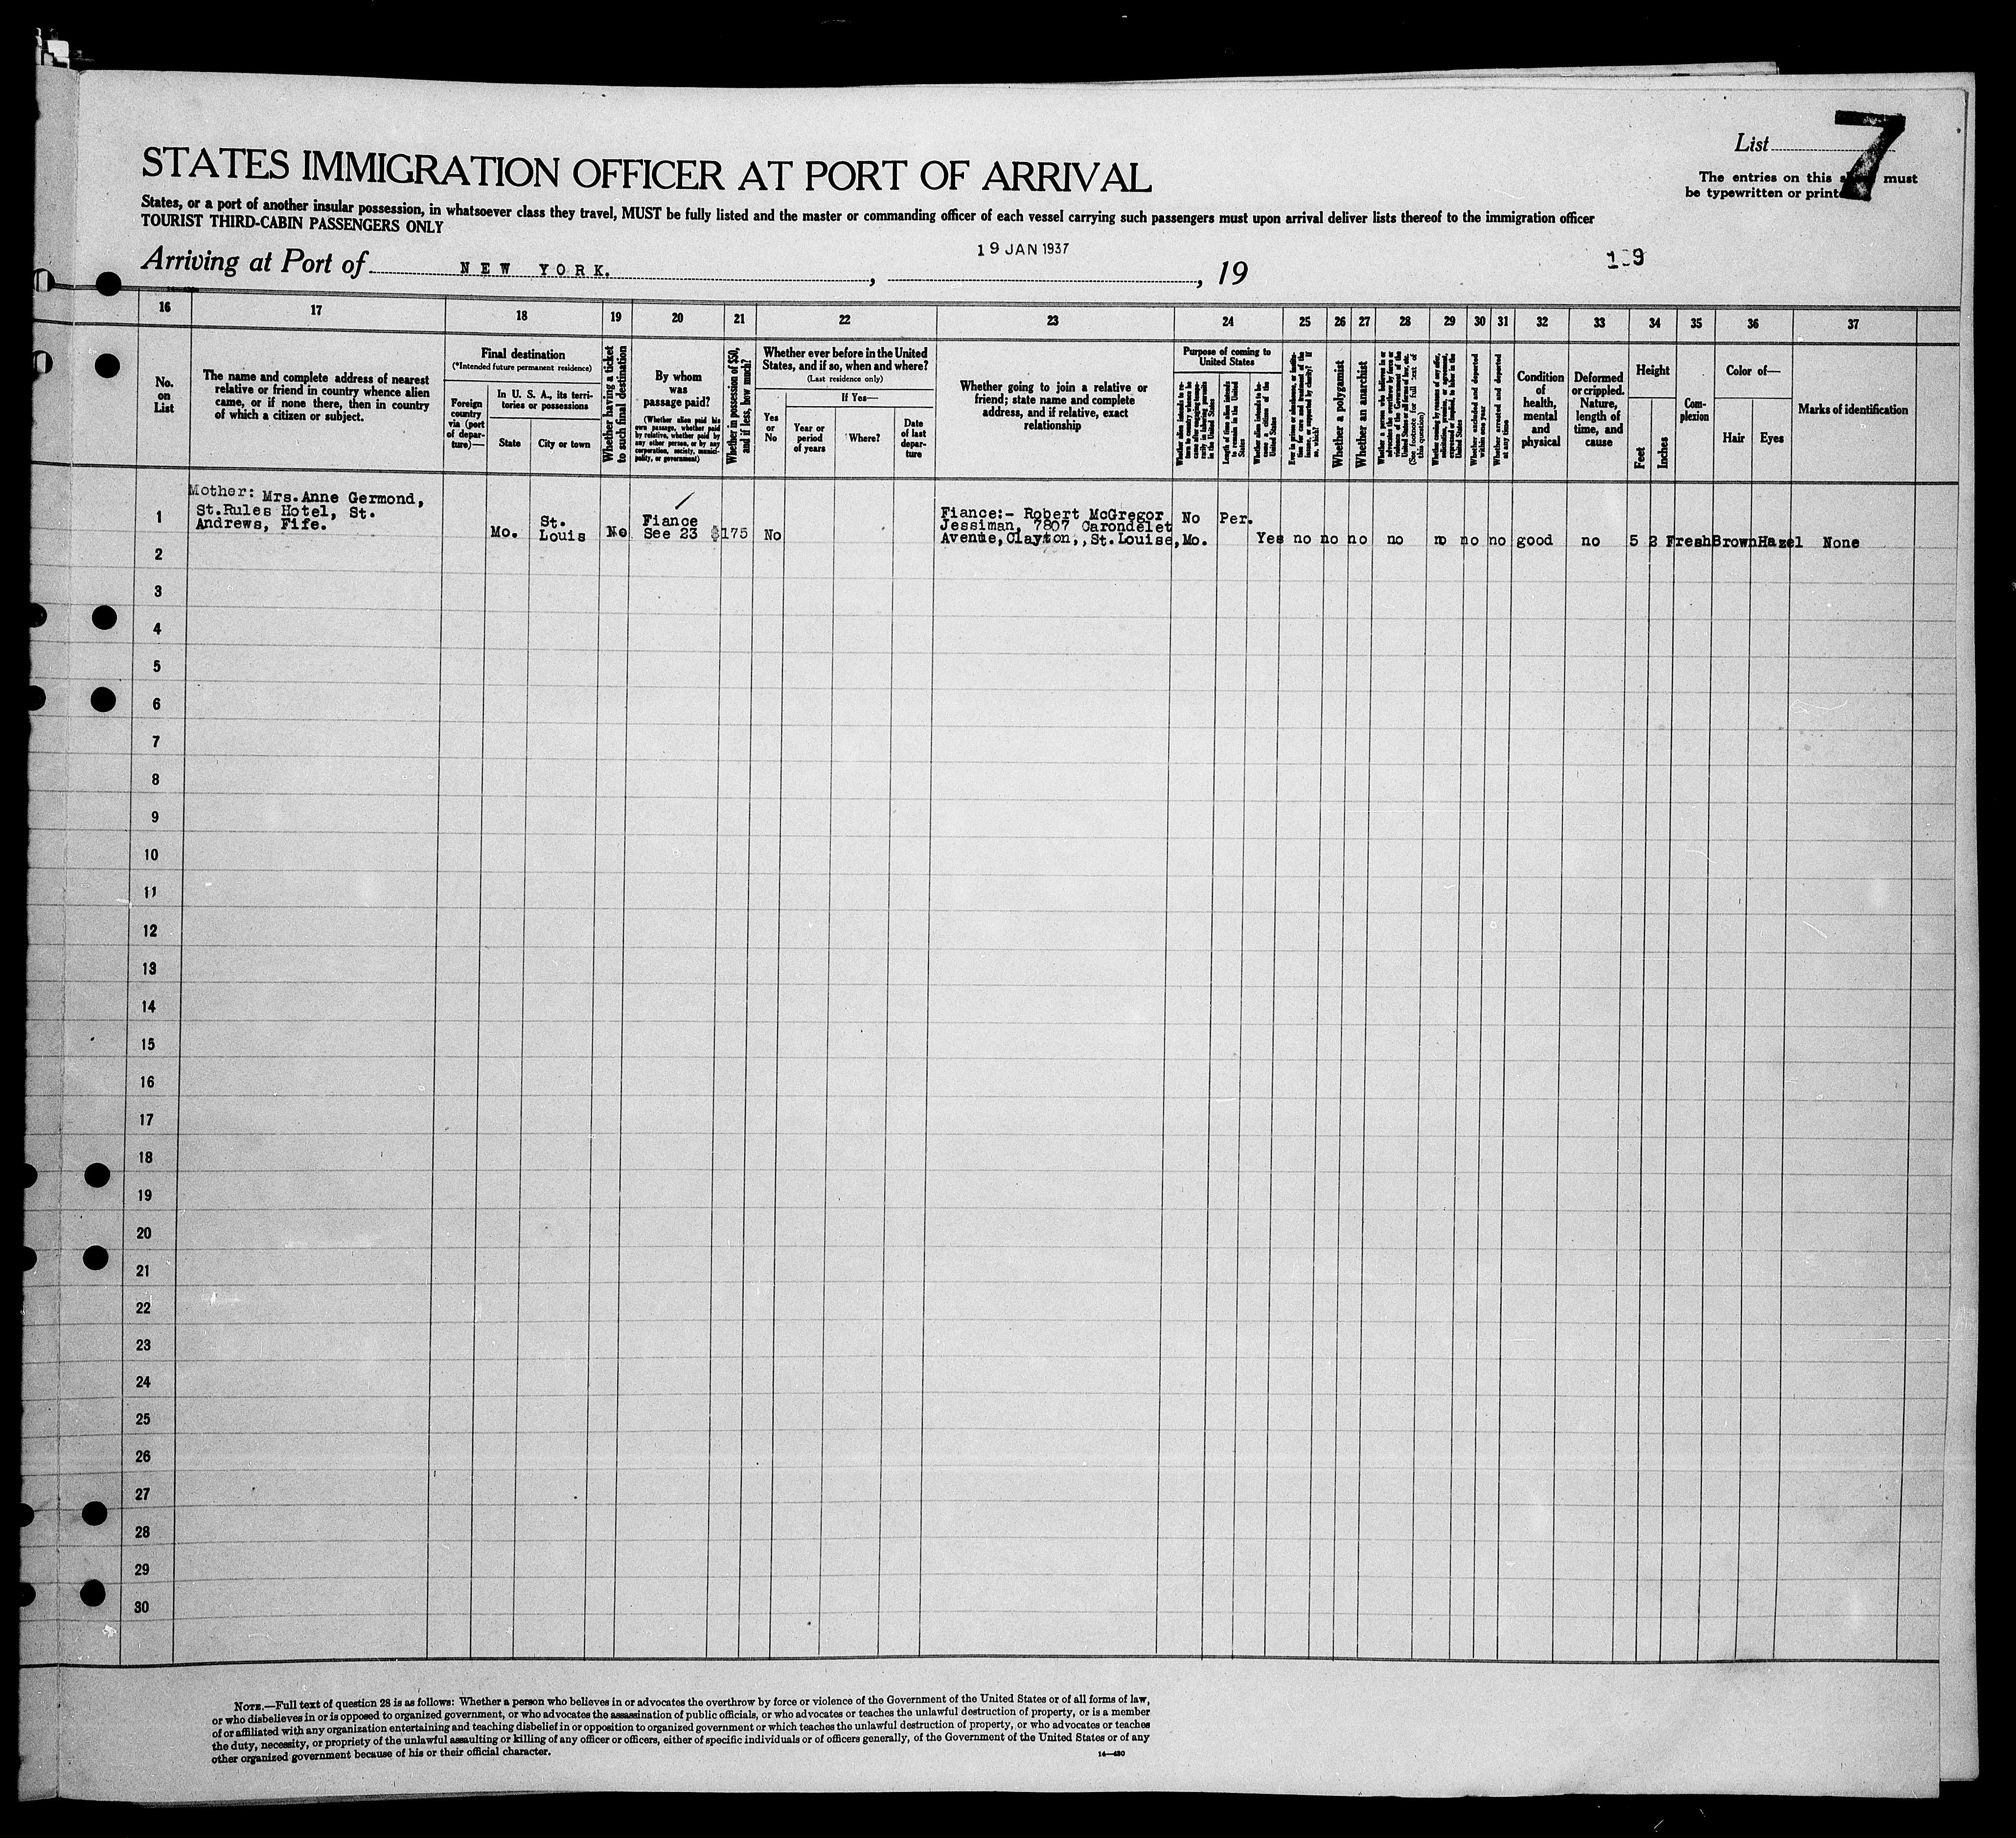 List
7
STATES IMMIGRATION OFFICER AT PORT OF ARRIVAL
The entries on this must
be typewritten or
States, or a port of another insular possession, in whatsoever class they travel, MUST be fully listed and the master or commanding officer of each vessel carrying such passengers must upon arrival deliver lists thereof to the immigration officer
TOURIST THIRD-CABIN PASSENGERS ONLY
Arriving at Port of NEW YORK. , 19 JAN 1937 , 19
16 17 18 19 20 21 22 23 24 25 26 27 28 29 30 31 32 33 34 35 36 37
No.
on
List
The name and complete address of nearest
relative or friend in country whence alien
came, or if none there, then in country
of which a citizen or subject.
Final destination
(*Intended future permanent residence)
Foreign
country
via (port
of depar-
ture)—
In U. S. A., its terri-
tories or possessions
State
City or town
Whether having a ticket
to such final destination
By whom
was
passage paid?
(Whether alien paid his
own passage, whether paid
by relative, whether paid by
any other person, or by any
corporation, society, munici-
pality, or government)
Whether in possession of $50,
and if less, how much?
Whether ever before in the United
States, and if so, when and where?
(Last residence only)
Yes
or
No
If Yes—
Year or
period
of years
Where?
Date
of last
depar-
ture
Whether going to join a relative or
friend; state name and complete
address, and if relative, exact
relationship
Purpose of coming to
United States
Length of time alien intends
to remain in the United
States
Whether alien intends to be-
come a citizen of the
United States
Whether a polygamist
Whether an anarchist
(See footnote for full text of
this question)
Whether excluded and deported
within one year
Whether arrested and deported
at any time
Condition
of
health,
mental
and
physical
Deformed
or crippled.
Nature,
length of
time, and
cause
Height
Feet
Inches
Com-
plexion
Color of—
Hair
Eyes
Marks of identification
1
Mother: Mrs.Anne Germond,
St.Rules Hotel, St.
Andrews, Fife.
Mo.
St.
Louis
No
Fiance
See 23
$175
No
Fiance:- Robert McGregor
Jessiman, 7807 Carondelet
Avenue,Clayton,,St.Louise,Mo.
No
Per.
Yes no no no no no no no good no 5 2 Fresh Brown Hazel None
2
3
4
5
6
7
8
9
10
11
12
13
14
15
16
17
18
19
20
21
22
23
24
25
26
27
28
29
30
NOTE.—Full text of question 28 is as follows: Whether a person who believes in or advocates the overthrow by force or violence of the Government of the United States or of all forms of law,
or who disbelieves in or is opposed to organized government, or who advocates the assassination of public officials, or who advocates or teaches the unlawful destruction of property, or is a member
of or affiliated with any organization entertaining and teaching disbelief in or opposition to organized government or which teaches the unlawful destruction of property, or who advocates or teaches
the duty, necessity, or propriety of the unlawful assaulting or killing of any officer or officers, either of specific individuals or of officers generally, of the Government of the United States or of any
other organized government because of his or their official character.
14—430